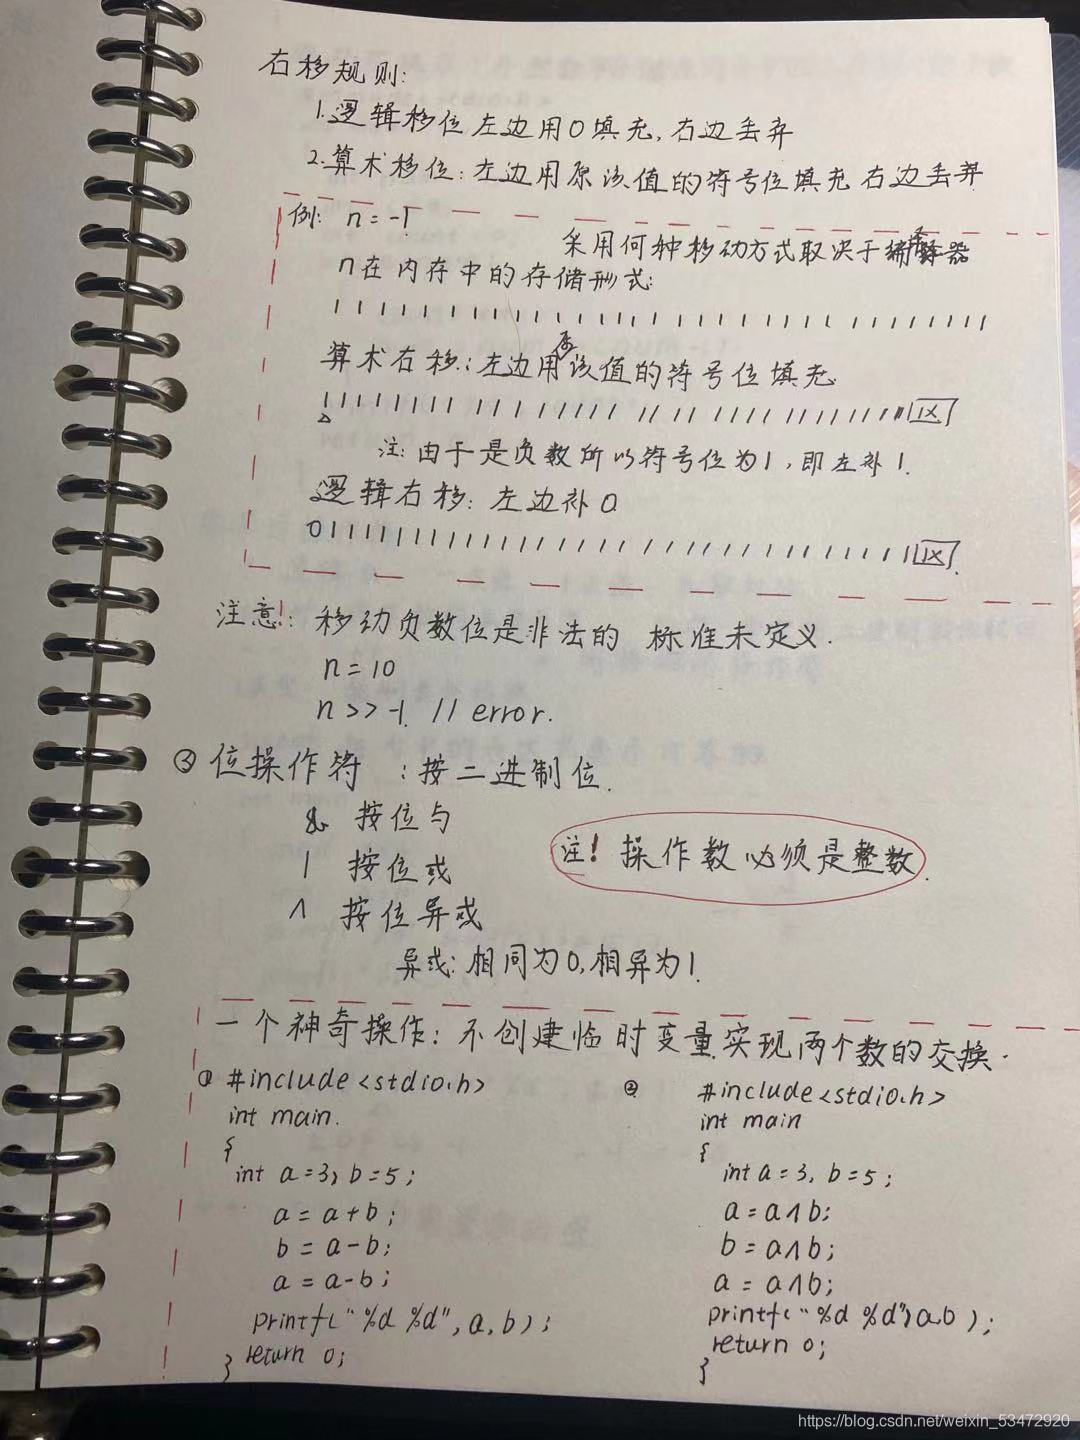 右移规则:
1.逻辑移位 左边用0填充,右边丢弃
2.算术移位:左边用原该值的符号位填充 右边丢弃
例: n = -1
采用何种移动方式取决于编译器
n在内存中的存储形式:
11111111111111111111111111111111
算术右移:左边用原该值的符号位填充
注:由于是负数所以符号位为1,即左补1.
逻辑右移:左边补0
注意!:移动负数位是非法的 标准未定义.
n = 10
n >> -1. // error.
③ 位操作符 :按二进制位.
& 按位与
| 按位或
注! 操作数必须是整数.
^ 按位异或
异或:相同为0,相异为1.
一个神奇操作:不创建临时变量,实现两个数的交换.
① #include<stdio.h>
int main.
{
int a=3, b=5;
a = a+b;
b = a-b;
a = a-b;
printf("%d %d", a, b);
return 0;
}
② #include<stdio.h>
int main
{
int a=3, b=5;
a = a^b;
b = a^b;
a = a^b;
printf("%d %d",a,b);
return 0;
}
https://blog.csdn.net/weixin_53472920